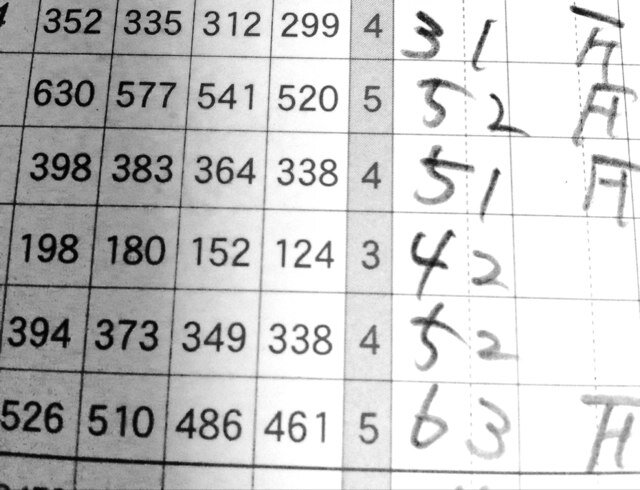 352 335 312 299 4 3 1
630 577 541 520 5 5 2
398 383 364 338 4 5 1
198 180 152 124 3 4 2
394 373 349 338 4 5 2
526 510 486 461 5 6 3